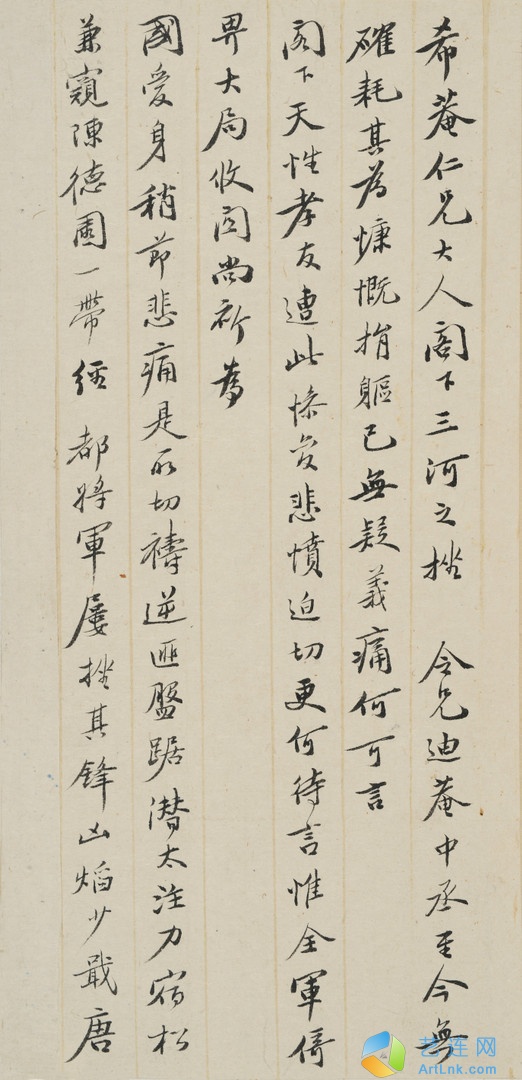 希菴仁兄大人閣下三河之挫 令兄迪菴中丞至今無
確耗其為慷慨捐軀已無疑義痛何可言
閣下天性孝友遭此慘變悲憤迫切更何待言惟全軍倚
畀大局攸関尚祈為
國愛身稍節悲痛是所切禱逆匪盤踞潛太注力宿松
兼窺陳德園一帶經 都將軍屢挫其鋒凶焰少戢唐
艺连网
ArtLnk.com